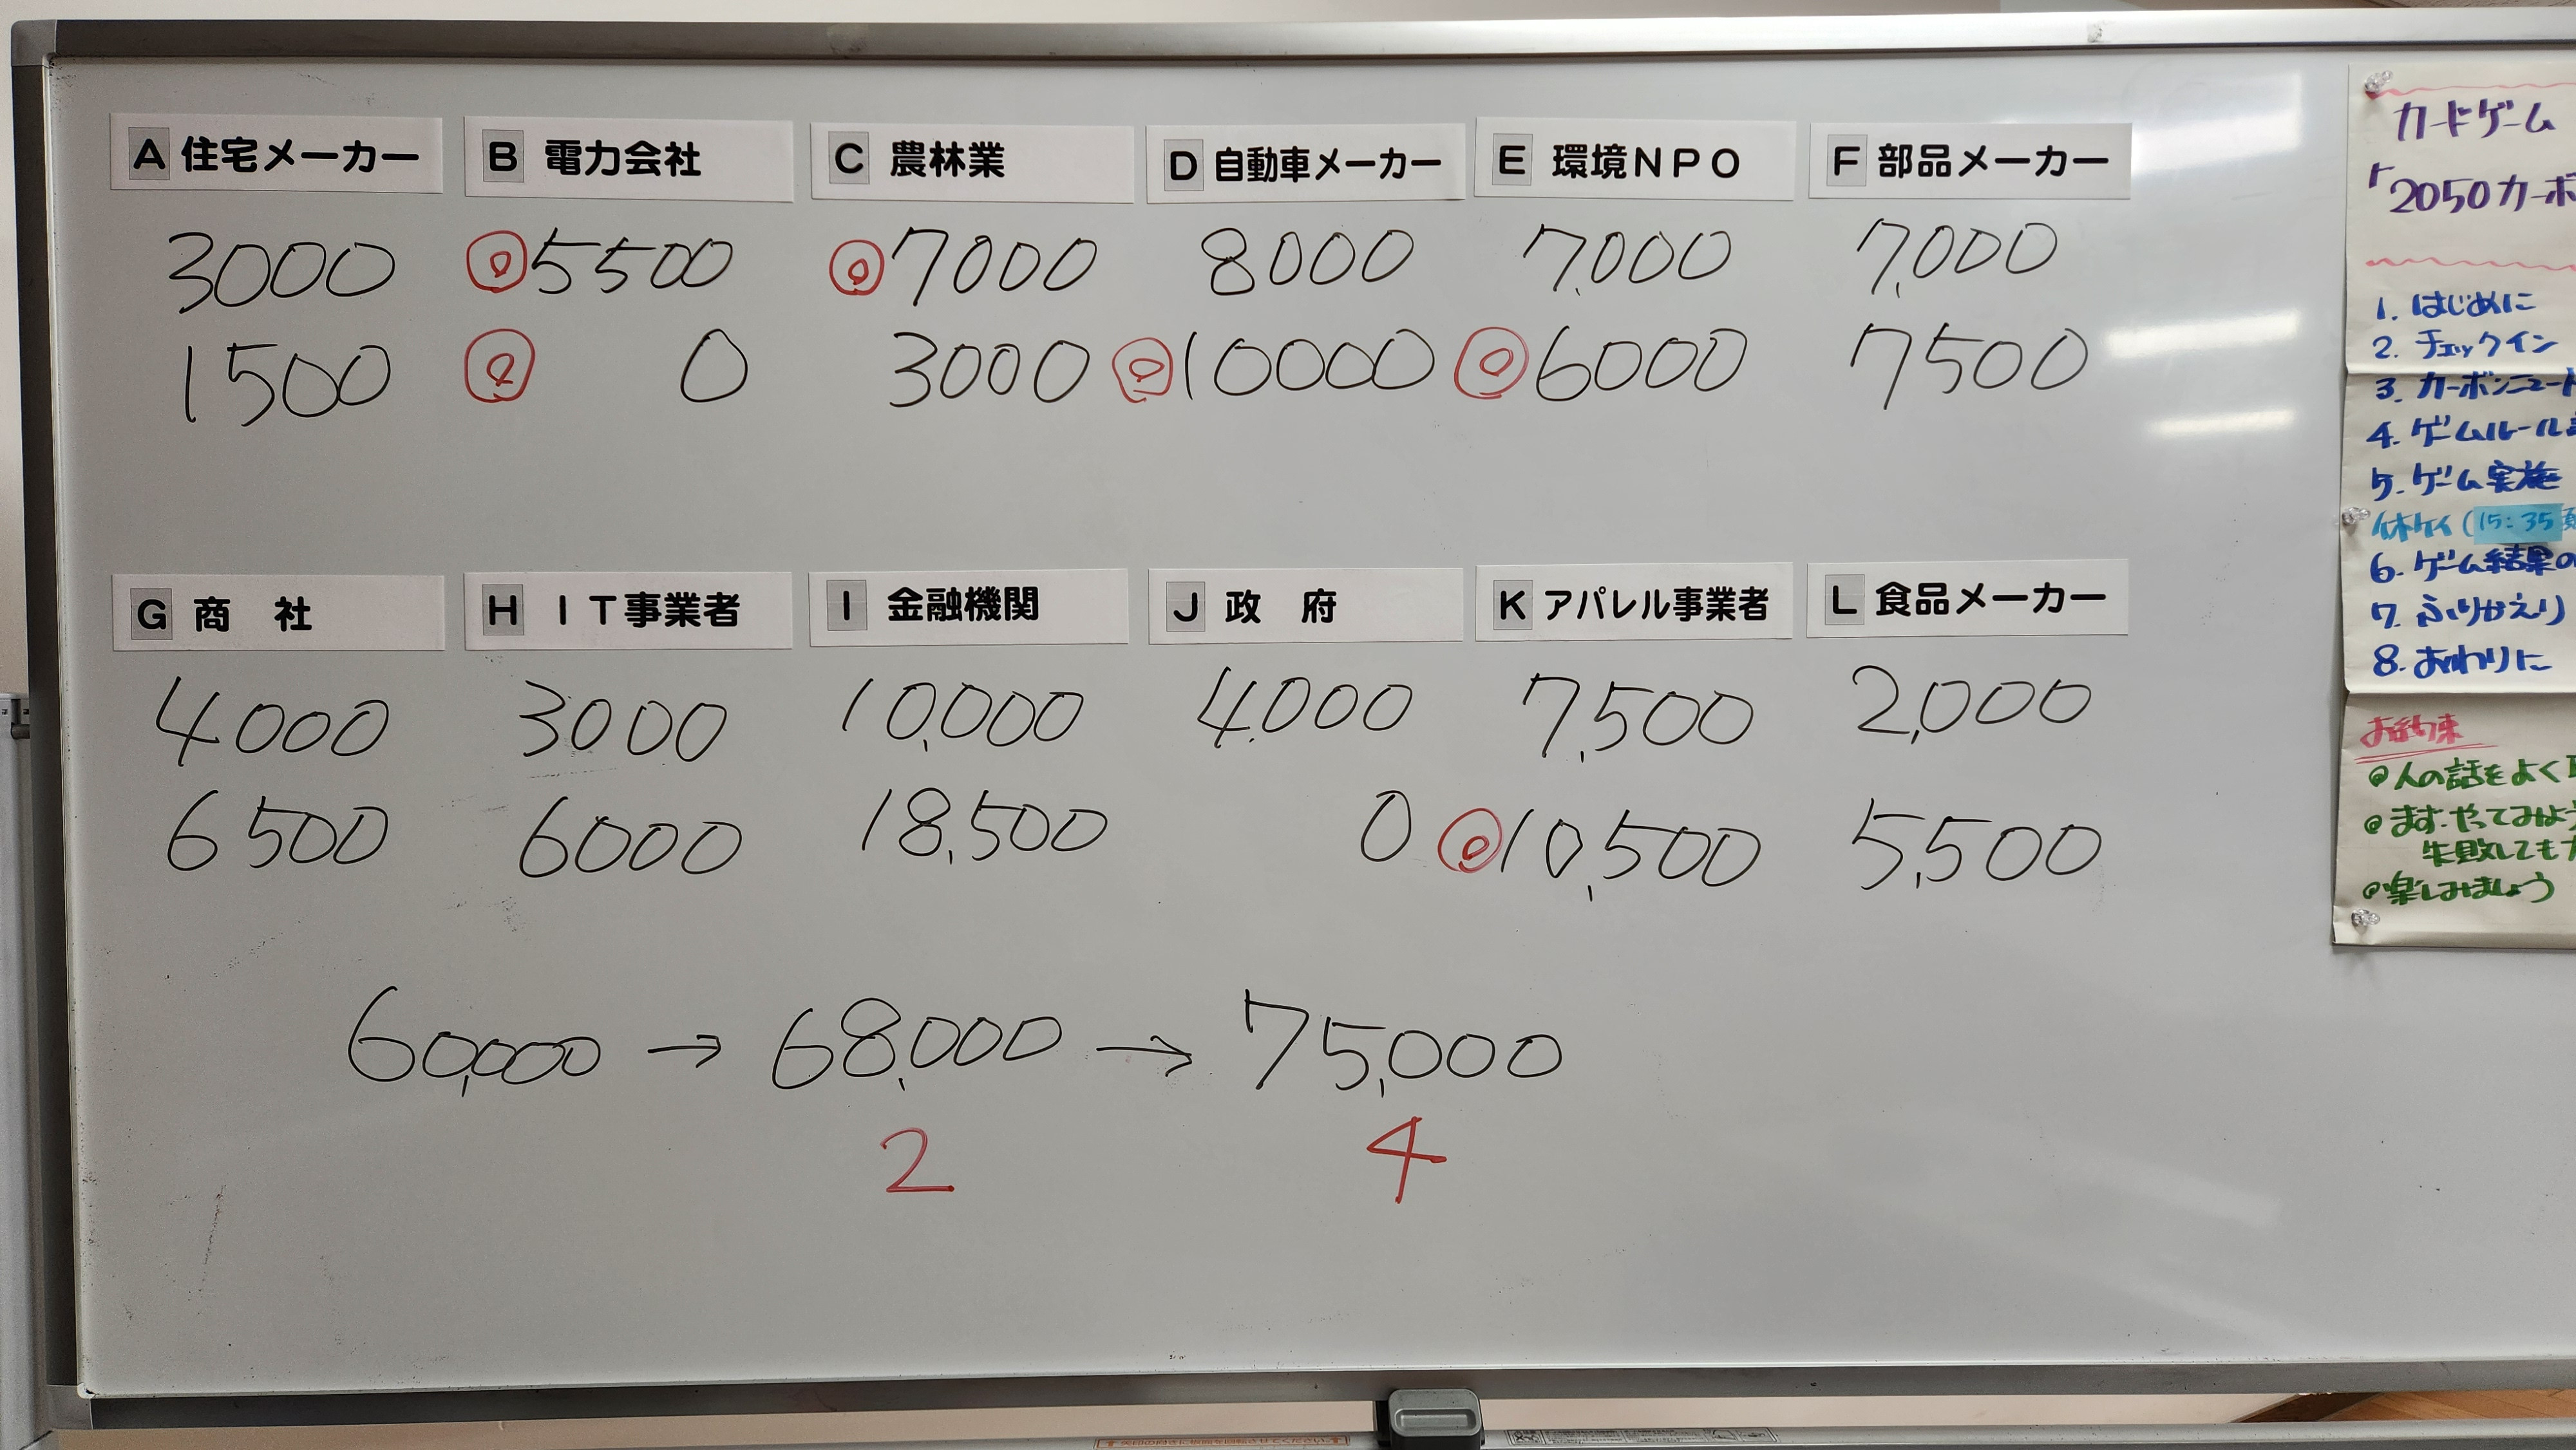 A 住宅メーカー B 電力会社 C 農林業 D 自動車メーカー E 環境NPO F 部品メーカー
3000 5500 7000 8000 7,000 7,000
1500 0 3000 10000 6000 7500
G 商 社 H IT事業者 I 金融機関 J 政 府 K アパレル事業者 L 食品メーカー
4000 3000 10,000 4,000 7,500 2,000
6500 6000 18,500 0 10,500 5,500
60,000 → 68,000 → 75,000
2 4
カードゲーム
「2050カーボ
1. はじめに
2. チェックイン
3. カーボンニュート
4. ゲームルール
5. ゲーム実施
休ケイ (15:35
6. ゲーム結果の
7. ふりかえり
8. おわりに
お約束
人の話をよく
まず、やってみよう
失敗しても
楽しみましょう